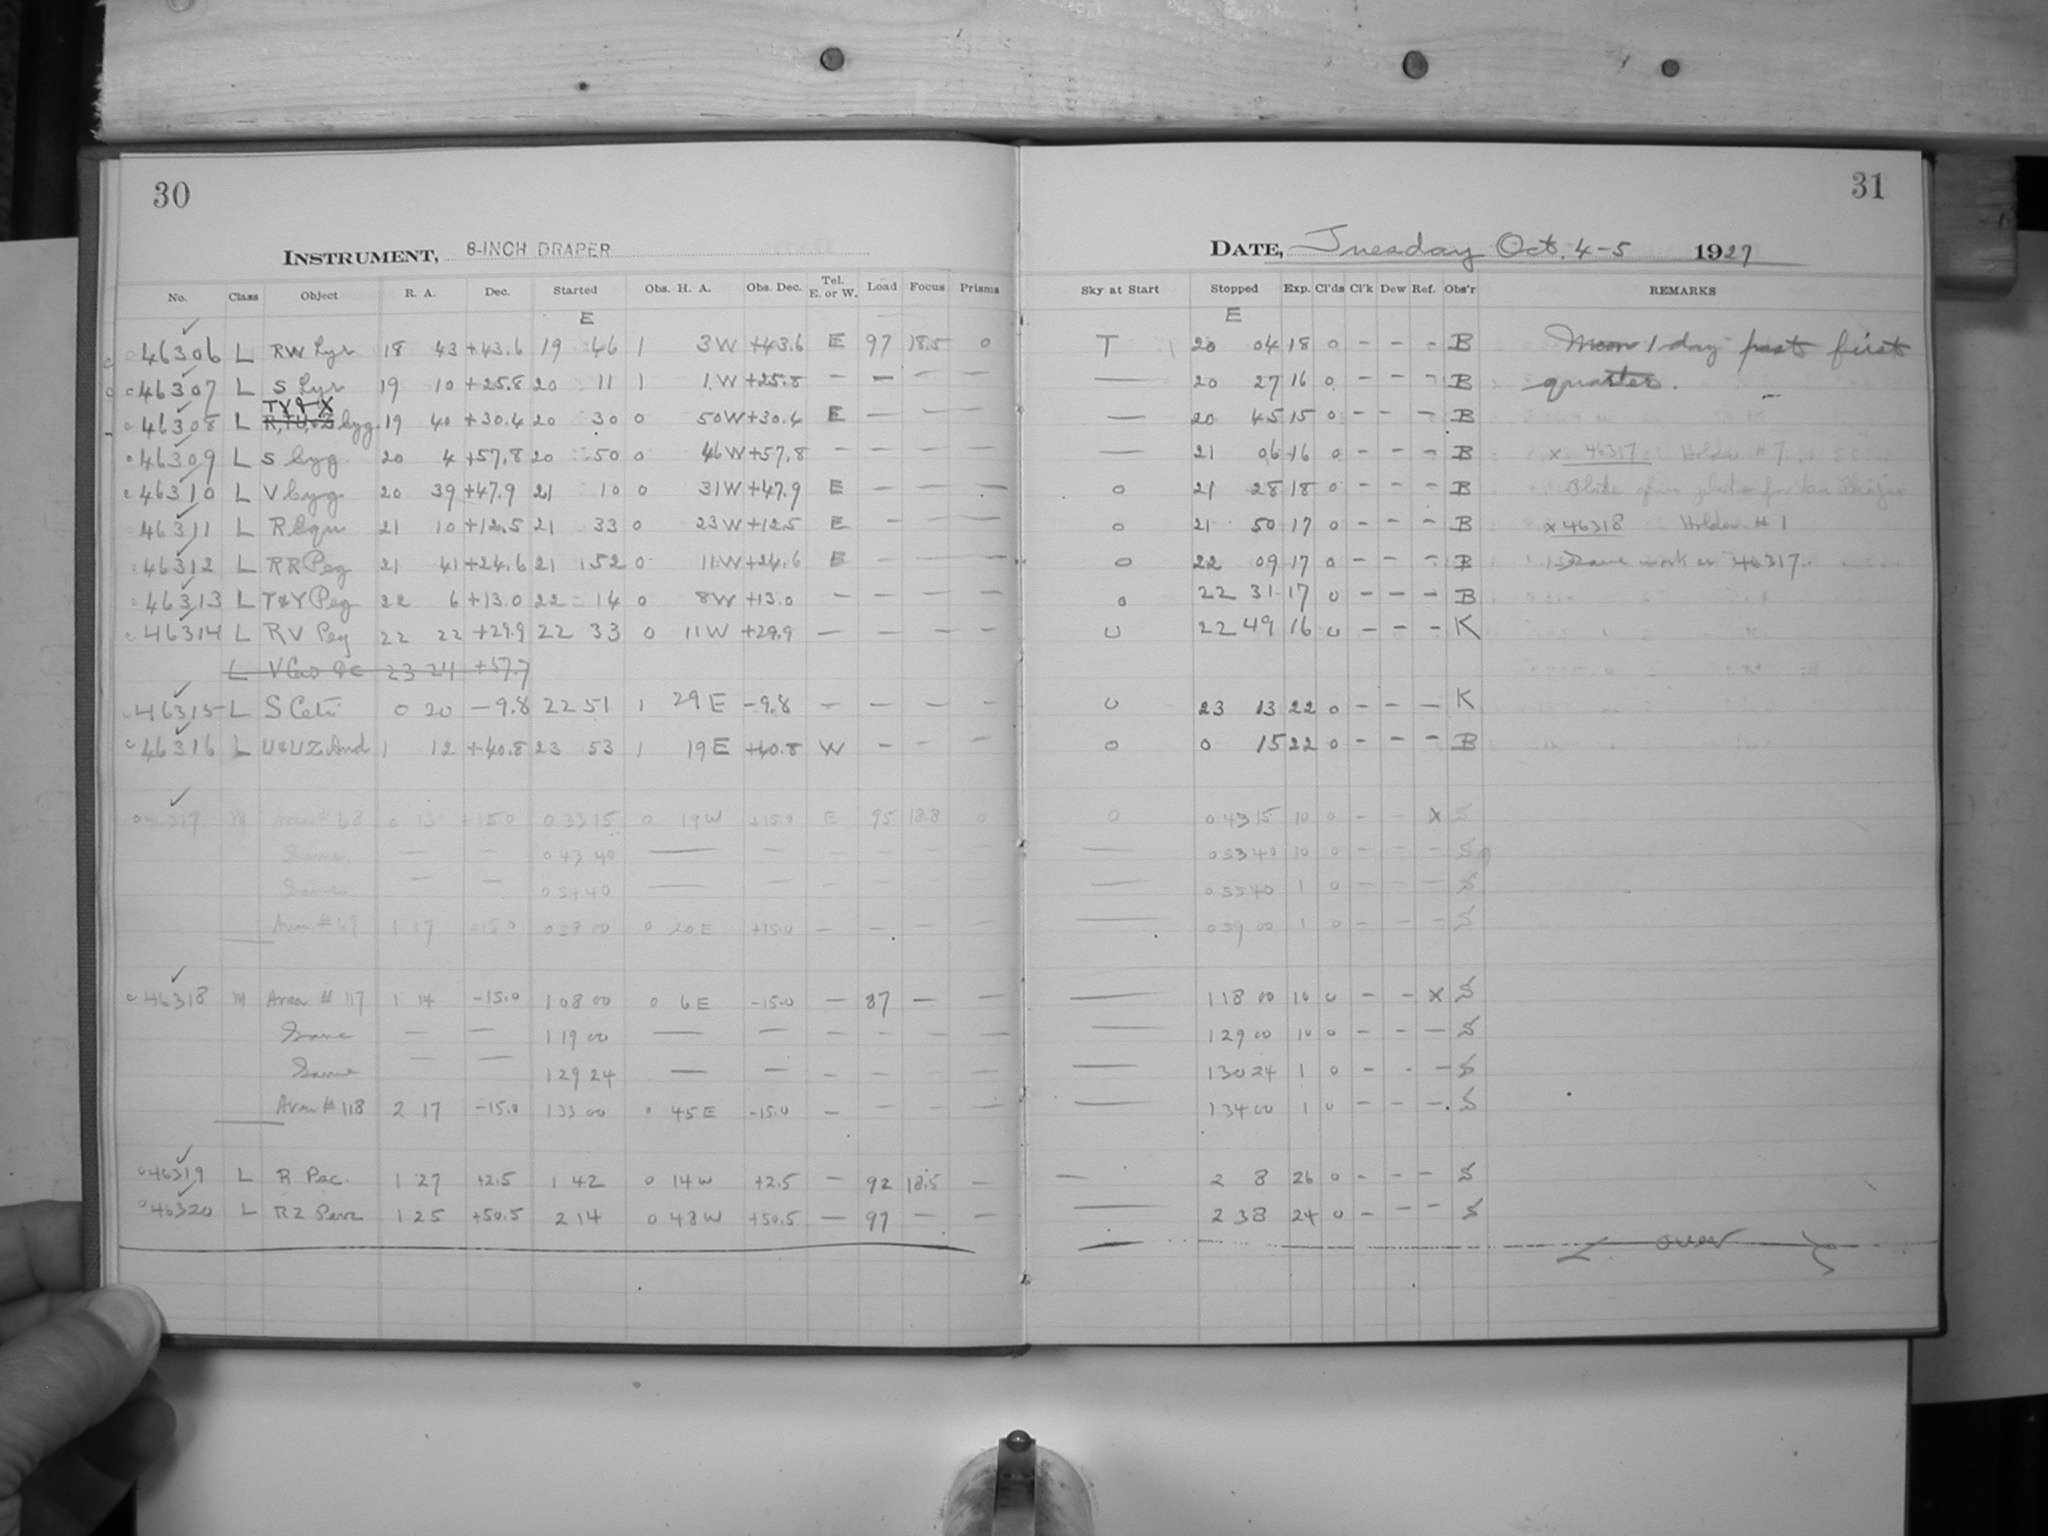 30
INSTRUMENT, 8-INCH DRAPER
No. Class Object R. A. Dec. Started Obs. H. A. Obs. Dec. Tel. E. or W. Load Focus Prisms
E
46306 L RW Lyr 18 43 +43.6 19 46 1 3W +43.6 E 97 18.5 0
46307 L S Lyr 19 10 +25.8 20 11 1 1W +25.8 — — — —
TY & X
46308 L R, TU, & Z Cyg. 19 40 +30.4 20 30 0 50W +30.4 E — — —
46309 L S Cyg 20 4 +57.8 20 50 0 46W +57.8 — — — —
46310 L V Cyg 20 39 +47.9 21 10 0 31W +47.9 E — — —
46311 L R Equ 21 10 +12.5 21 33 0 23W +12.5 E — — —
46312 L RR Peg 21 41 +24.6 21 52 0 11W +24.6 E — — —
46313 L T&Y Peg 22 6 +13.0 22 14 0 8W +13.0 — — — —
46314 L RV Peg 22 22 +29.9 22 33 0 11W +29.9 — — — —
L V Cas 23 24 +57.7
46315 L S Ceti 0 20 —9.8 22 51 1 29E —9.8 — — — —
46316 L U&UZ And 1 12 +40.8 23 53 1 19E +40.8 W — — —
317 M Area #68 0 13 +15.0 0 33 15 0 19W +15.0 E 95 18.8 0
Same — — 0 43 40 — — — — — —
Same — — 0 54 40 — — — — — —
Area #69 1 17 +15.0 0 58 00 0 20E +15.0 — — — —
46318 M Area #117 1 14 -15.0 1 08 00 0 6E -15.0 — 87 — —
Same — — 1 19 00 — — — — — —
Same — — 1 29 24 — — — — — —
Area #118 2 17 -15.0 1 33 00 0 45E -15.0 — — — —
46319 L R Psc. 1 27 +2.5 1 42 0 14W +2.5 — 92 18.5 —
46320 L RZ Pers 1 25 +50.5 2 14 0 48W +50.5 — 97 — —
31
DATE, Tuesday Oct. 4-5 1927
Sky at Start Stopped Exp. Cl'ds Cl'k Dew Ref. Obs'r REMARKS
E
T 20 04 18 0 - - - B Moon 1 day past first
— 20 27 16 0 - - - B quarter.
— 20 45 15 0 - - - B
— 21 06 16 0 - - - B x 46317 Holder #7
0 21 28 18 0 - - - B
0 21 50 17 0 - - - B x 46318 Holder #1
0 22 09 17 0 - - - B Same work as 46317.
0 22 31 17 0 - - - B
0 22 49 16 0 - - - K
0 23 13 22 0 - - - K
0 0 15 22 0 - - - B
0 0 43 15 10 0 - - x S
— 0 53 40 10 0 - - - S
— 0 55 40 1 0 - - - S
— 0 59 00 1 0 - - - S
— 1 18 00 10 0 - - x S
— 1 29 00 10 0 - - - S
— 1 30 24 1 0 - - - S
— 1 34 00 1 0 - - - S
— 2 8 26 0 - - - S
— 2 38 24 0 - - - S
over